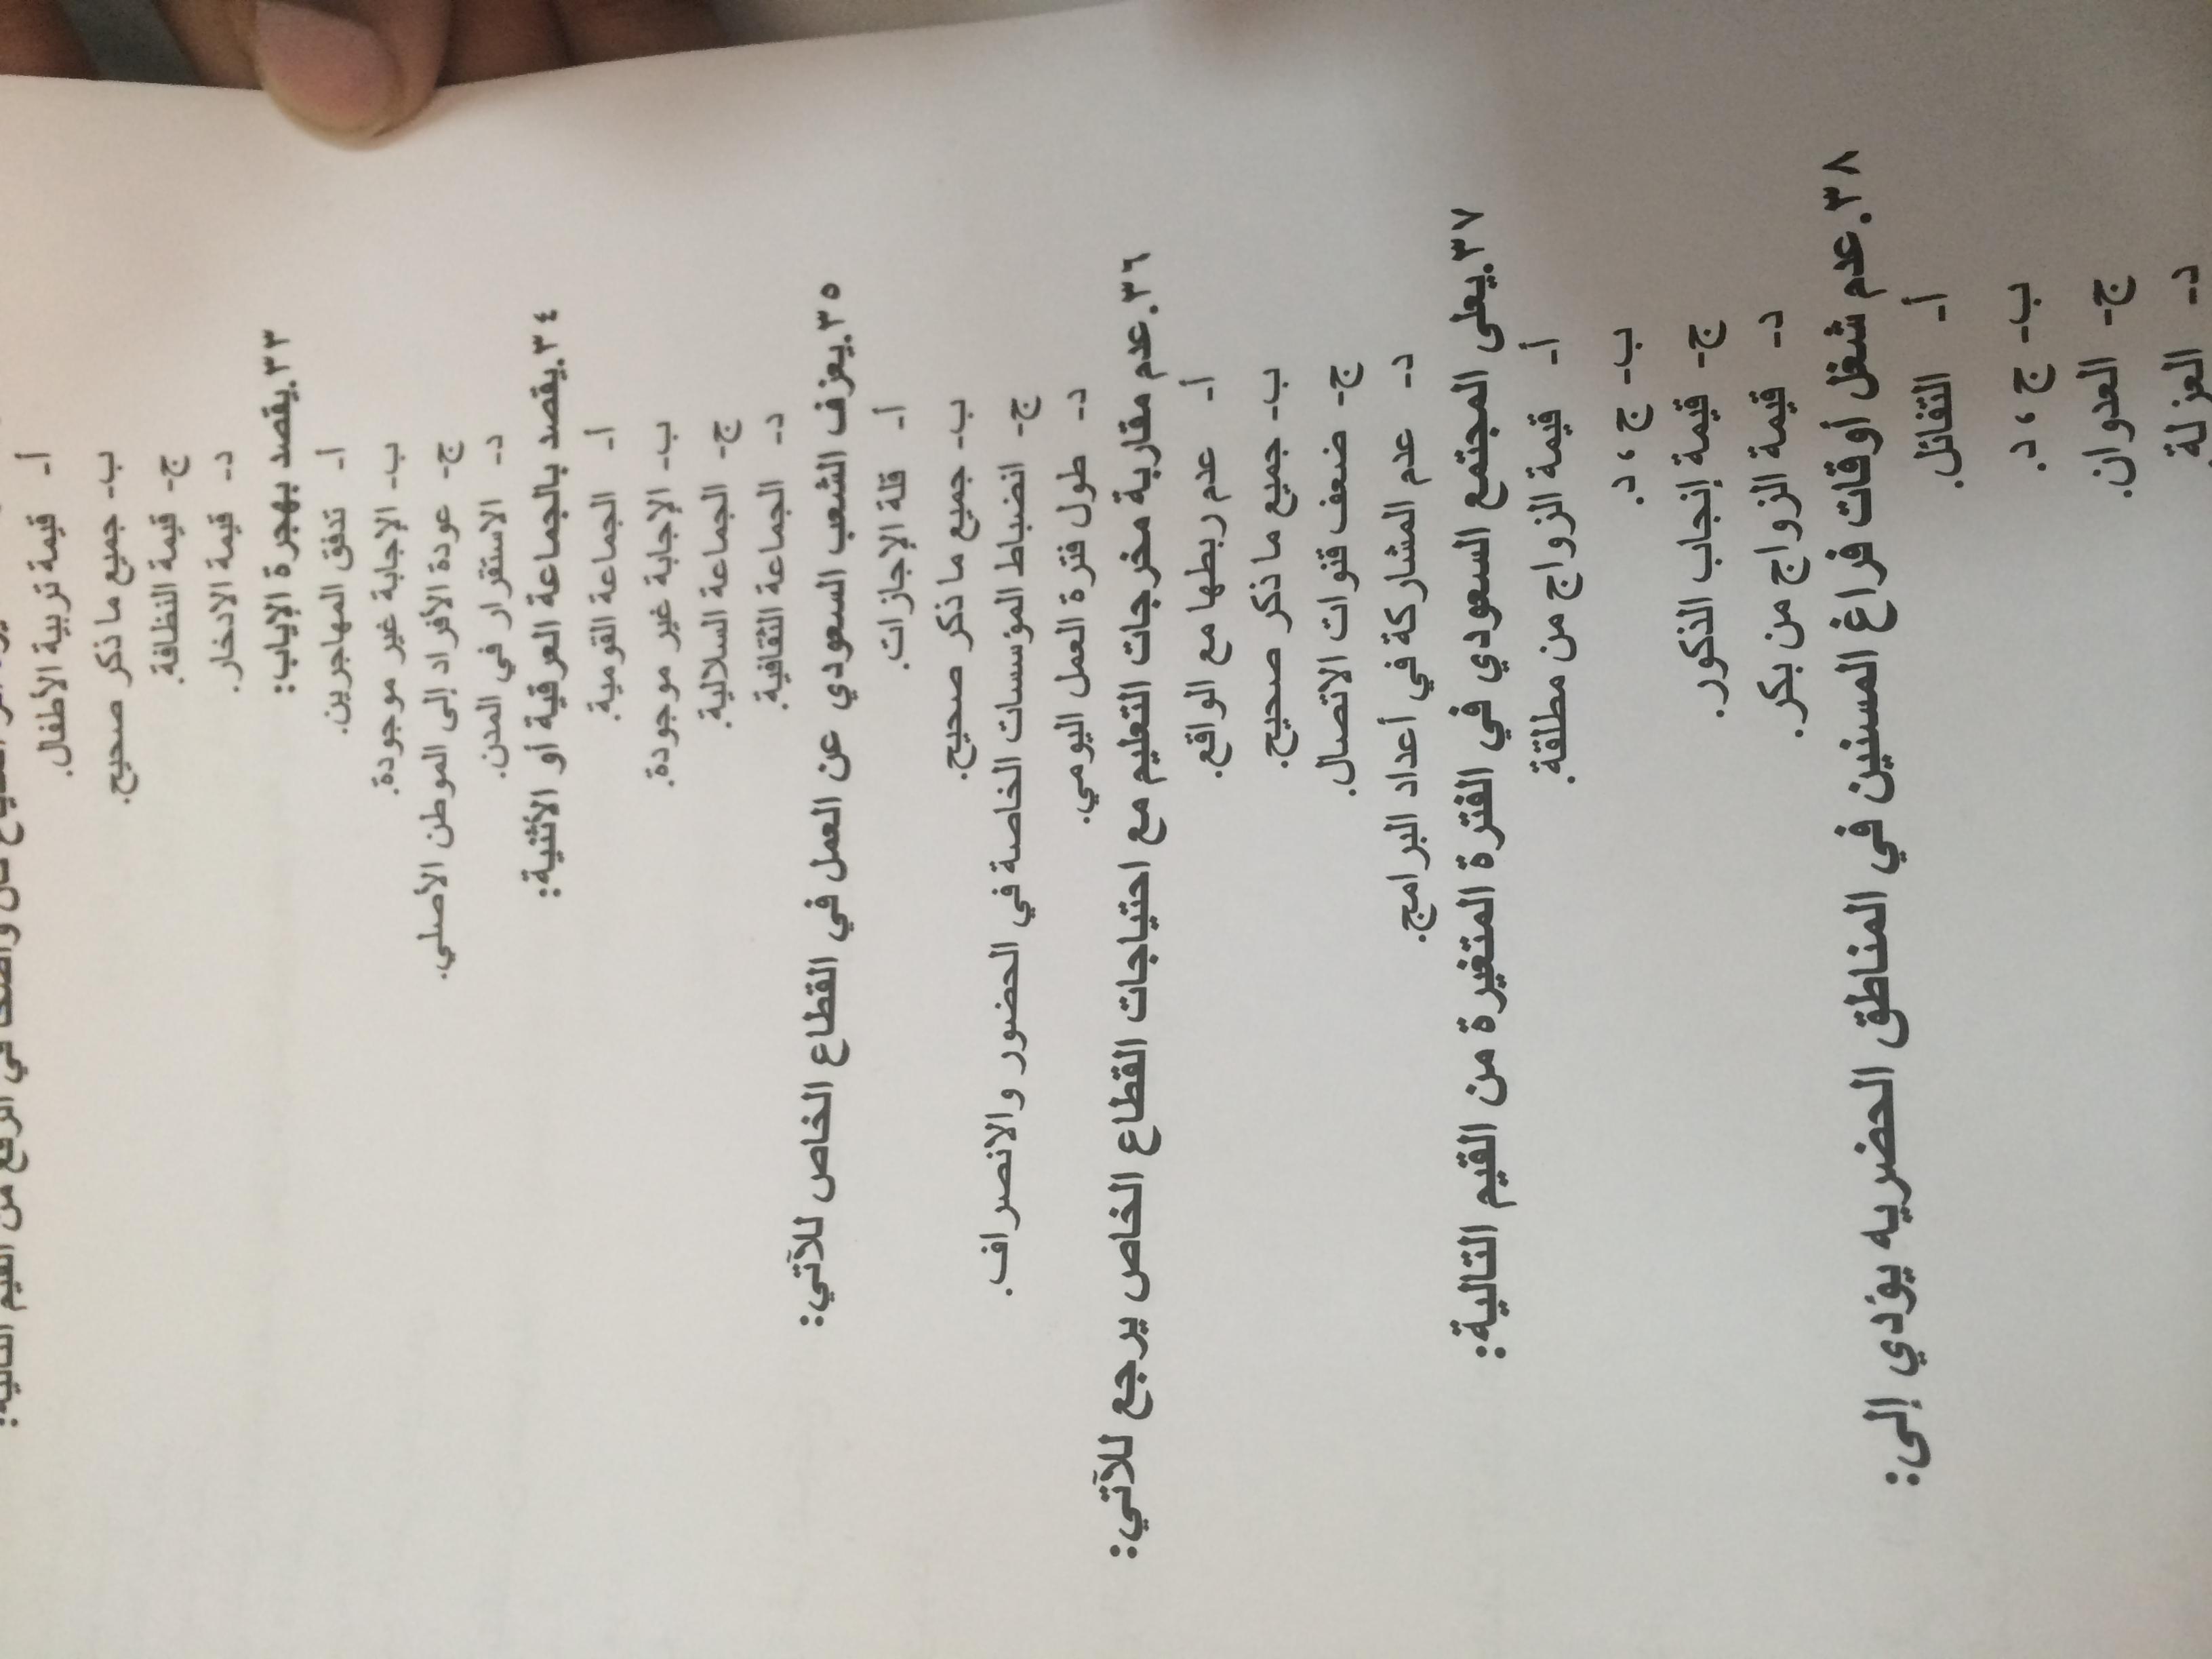 في الرفع من القيم التالية:
أ- قيمة تربية الأطفال.
ب- جميع ما ذكر صحيح.
ج- قيمة النظافة.
د- قيمة الادخار.
٣٣.يقصد بهجرة الإياب:
أ- تدفق المهاجرين.
ب- الإجابة غير موجودة.
ج- عودة الأفراد إلى الموطن الأصلي.
د- الاستقرار في المدن.
٣٤.يقصد بالجماعة العرقية أو الأثنية:
أ- الجماعة القومية.
ب- الإجابة غير موجودة.
ج- الجماعة السلالية.
د- الجماعة الثقافية.
٣٥.يعزف الشعب السعودي عن العمل في القطاع الخاص للآتي:
أ- قلة الإجازات.
ب- جميع ما ذكر صحيح.
ج- انضباط المؤسسات الخاصة في الحضور والانصراف.
د- طول فترة العمل اليومي.
٣٦.عدم مقاربة مخرجات التعليم مع احتياجات القطاع الخاص يرجع للآتي:
أ- عدم ربطها مع الواقع.
ب- جميع ما ذكر صحيح.
ج- ضعف قنوات الاتصال.
د- عدم المشاركة في أعداد البرامج.
٣٧.يعلى المجتمع السعودي في الفترة المتغيرة من القيم التالية:
أ- قيمة الزواج من مطلقة.
ب- ج ، د.
ج- قيمة إنجاب الذكور.
د- قيمة الزواج من بكر.
٣٨.عدم شغل أوقات فراغ المسنين في المناطق الحضريه يؤدي إلى:
أ- التفائل.
ب- ج ، د.
ج- العدوان.
د- العزلة.